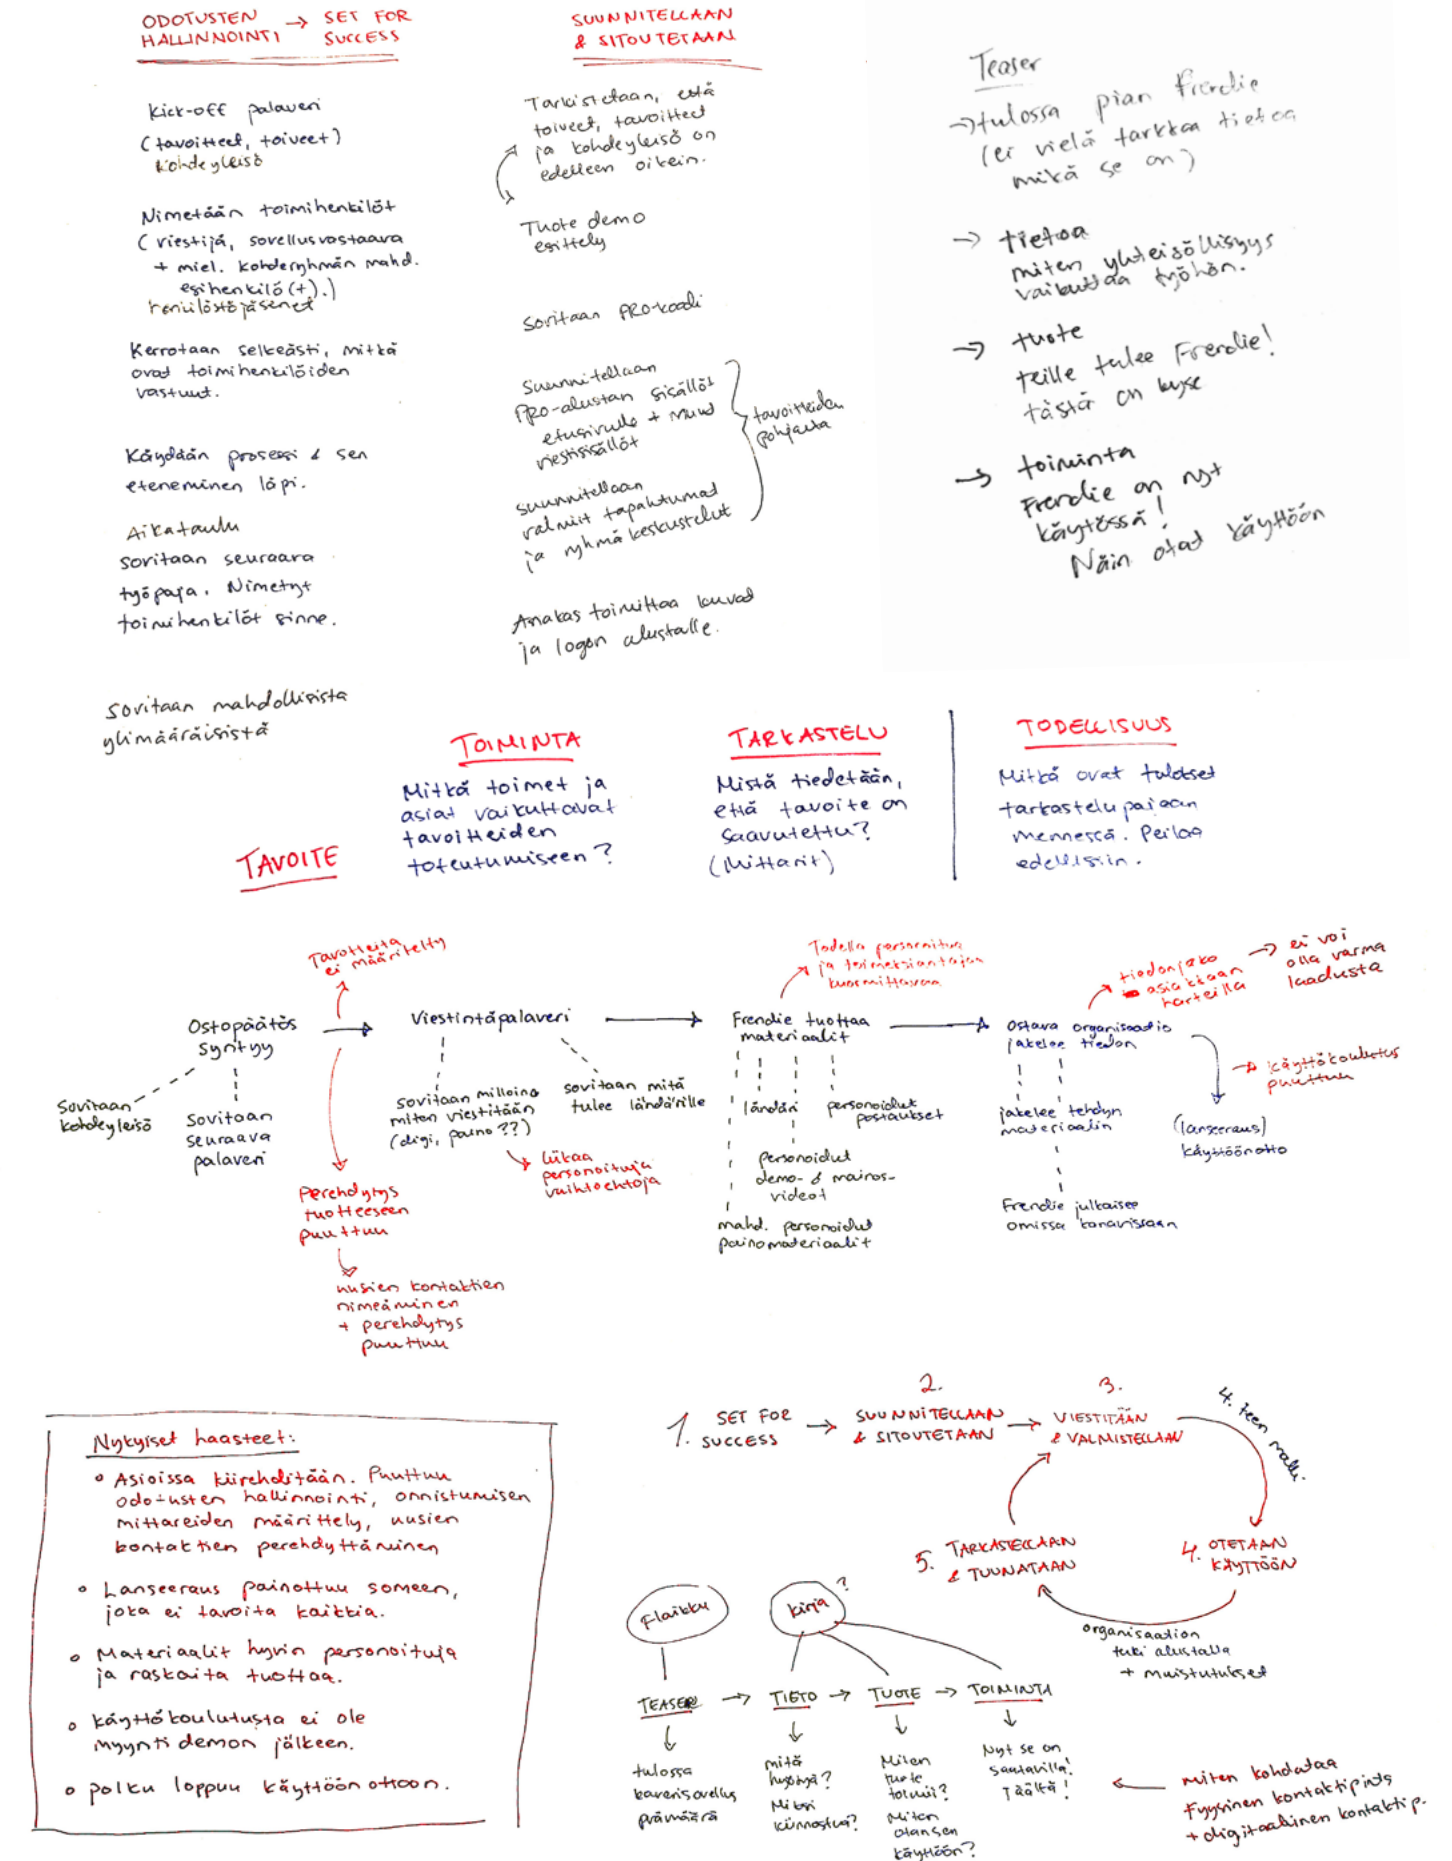 ODOTUSTEN → SET FOR
HALLINNOINTI SUCCESS
Kick-off palaveri
(tavoitteet, toiveet)
kohdeyleisö
Nimetään toimihenkilöt
(viestijä, sovellusvastaava
+ miel. kohderyhmän mahd.
esihenkilö(t).)
henkilöstöjäsenet
Kerrotaan selkeästi, mitkä
ovat toimihenkilöiden
vastuut.
Käydään prosessi & sen
eteneminen läpi.
Aikataulu
sovitaan seuraava
työpaja. Nimetyt
toimihenkilöt sinne.
Sovitaan mahdollisista
ylimääräisistä
SUUNNITELLAAN
& SITOUTETAAN
Tarkistetaan, että
toiveet, tavoitteet
ja kohdeyleisö on
edelleen oikein.
Tuote demo
esittely
Sovitaan PRO-koodi
Suunnitellaan
PRO-alustan sisällöt
etusivulle + muut
viestisisällöt
suunnitellaan
valmiit tapahtumat
ja ryhmäkeskustelut
tavoitteiden
pohjalta
Asiakas toimittaa kuvat
ja logon alustalle.
Teaser
→ tulossa pian Frendie
(ei vielä tarkkaa tietoa
mikä se on)
→ tietoa
miten yhteisöllisyys
vaikuttaa työhön.
→ tuote
teille tulee Frendie!
tästä on kyse
→ toiminta
Frendie on nyt
käytössä!
Näin otat käyttöön
TAVOITE
TOIMINTA
Mitkä toimet ja
asiat vaikuttavat
tavoitteiden
toteutumiseen?
TARKASTELU
Mistä tiedetään,
että tavoite on
saavutettu?
(Mittarit)
TODELLISUUS
Mitkä ovat tulokset
tarkastelupaivaan
mennessä. Peilaa
edellisiin.
Tavoitteita
ei määritelty
Ostopäätös
syntyy
Sovitaan
kohdeyleisö
Sovitaan
seuraava
palaveri
Perehdytys
tuotteeseen
puuttuu
uusien kontaktien
nimeäminen
+ perehdytys
puuttuu
Viestintäpalaveri
sovitaan milloin
miten viestitään
(digi, paino ??)
sovitaan mitä
tulee ländärille
liikaa
personoituja
vaihtoehtoja
Todella personoitua
ja toimeksiantajaa
kuormittavaa
Frendie tuottaa
materiaalit
ländäri
personoidut
postaukset
personoidut
demo- & mainos-
videot
mahd. personoidut
painomateriaalit
tiedonjako
asiakkaan
harteilla
→ ei voi
olla varma
laadusta
Ostava organisaatio
jakelee tiedon
jakelee tehdyn
materiaalin
Frendie julkaisee
omissa kanavissaan
→ Käyttökoulutus
puuttuu
(lanseeraus)
Käyttöönotto
Nykyiset haasteet:
• Asioissa kiirehditään. Puuttuu
odotusten hallinnointi, onnistumisen
mittareiden määrittely, uusien
kontaktien perehdyttäminen
• Lanseeraus painottuu someen,
joka ei tavoita kaikkia.
• Materiaalit hyvin personoituja
ja raskaita tuottaa.
• Käyttökoulutusta ei ole
myynti demon jälkeen.
• Polku loppuu käyttöönottoon.
1. SET FOR
SUCCESS
2.
SUUNNITELLAAN
& SITOUTETAAN
3.
VIESTITÄÄN
& VALMISTELLAAN
4. teen malli
4. OTETAAN
KÄYTTÖÖN
5. TARKASTELLAAN
& TUUNATAAN
organisaation
tuki alustalla
+ muistutukset
Flaikku
kirja ?
TEASER → TIETO → TUOTE → TOIMINTA
tulossa
kaverisovellus
mitä
hyötyä?
Miksi
kiinnostua?
Miten
tuote
toimii?
Miten
otan sen
käyttöön?
Nyt se on
saatavilla!
Täältä!
miten kohdataa
Fyysinen kontaktipiste
+ digitaalinen kontaktip.